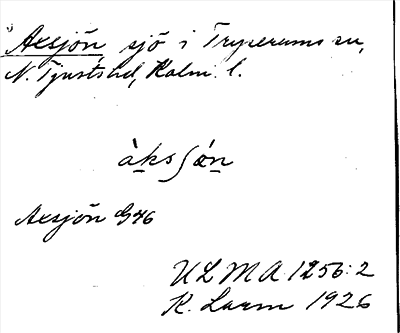 Axsjön, sjö i Tryserums sn,
N. Tjusts hd, Kalm. l.
àksʃøn
Axsjön G46
ULMA 1256:2
K. Larm 1926